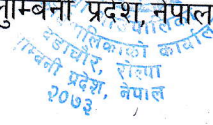 लुम्बिनी प्रदेश, नेपाल
पालिकाको कार्यालय
वडाचौर, रोल्पा
लुम्बिनी प्रदेश, नेपाल
२०७३